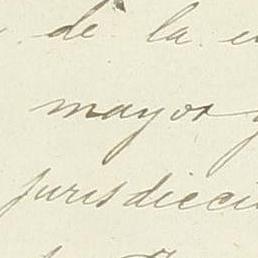 de la
mayor y
jurisdicci